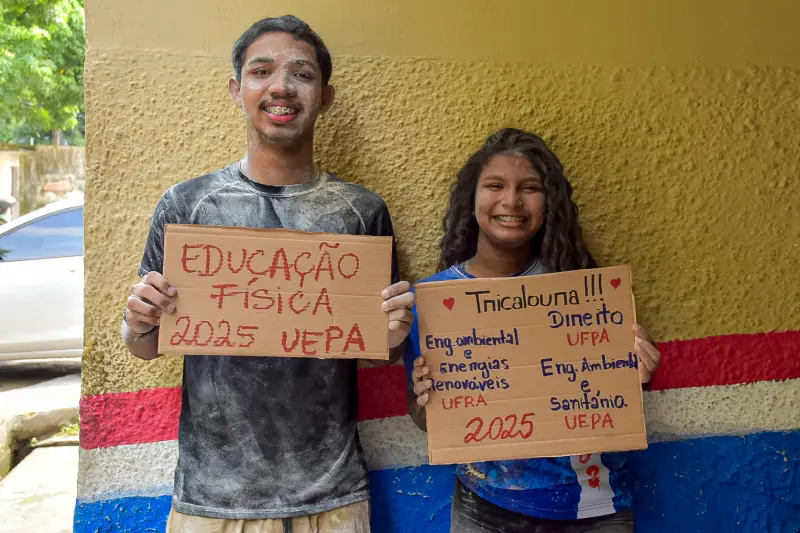 EDUCAÇÃO
FÍSICA
2025 UEPA
Tricaloura!!!
Eng. ambiental
e
Energias
Renováveis
UFRA
Direito
UFPA
Eng. Ambiental
e
Sanitária
UEPA
2025